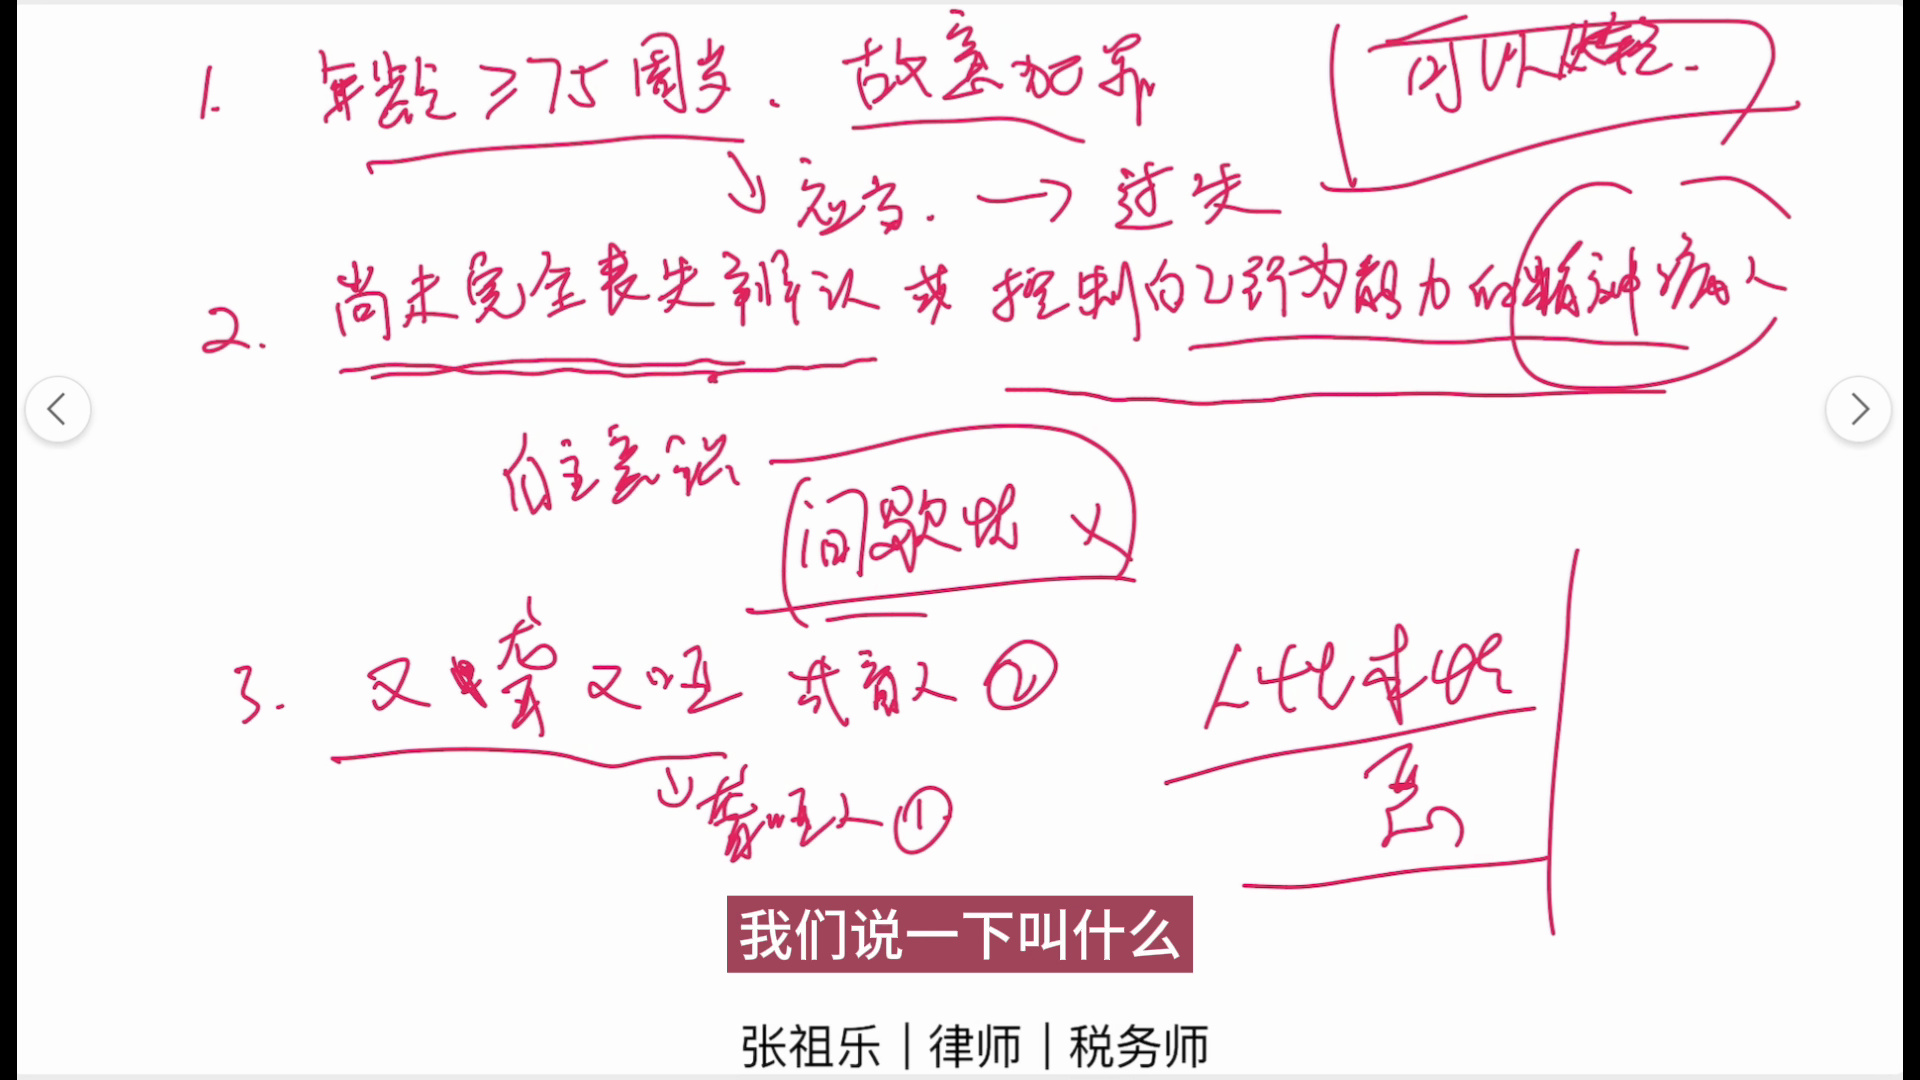 1. 年龄≥75周岁. 故意犯罪 可以从轻.
↓应当. → 过失
2. 尚未完全丧失辨认或控制自己行为能力的精神病人
自主意识
间歇性 ×
3. 又聋又哑 或盲人② 人性本
↓聋哑人① 恶
我们说一下叫什么
张祖乐｜律师｜税务师